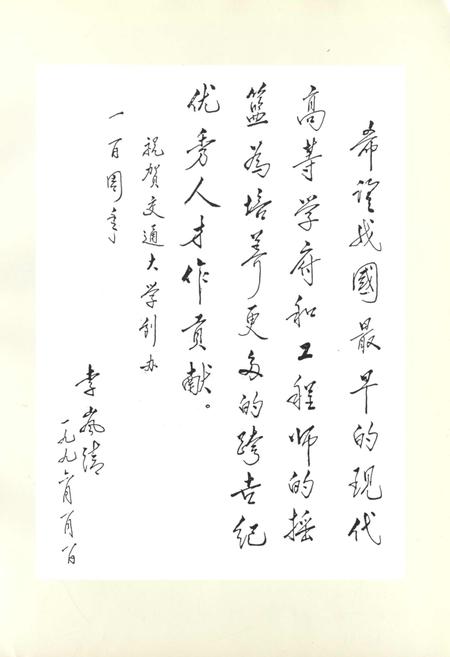 希望我國最早的现代
高等学府和工程师的摇
籃為培养更多的跨世纪
优秀人才作贡献。
祝贺交通大学创办
一百周年
李岚清
一九九六